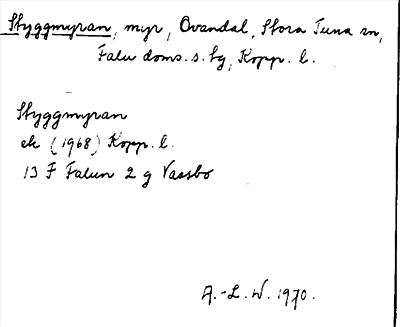 Styggmyran, myr, Ovandal, Stora Tuna sn,
Falu doms. s. tg, Kopp. l.
Styggmyran
ek (1968) Kopp. l.
13 F Falun 2 g Vassbo
A.-L. W. 1970.